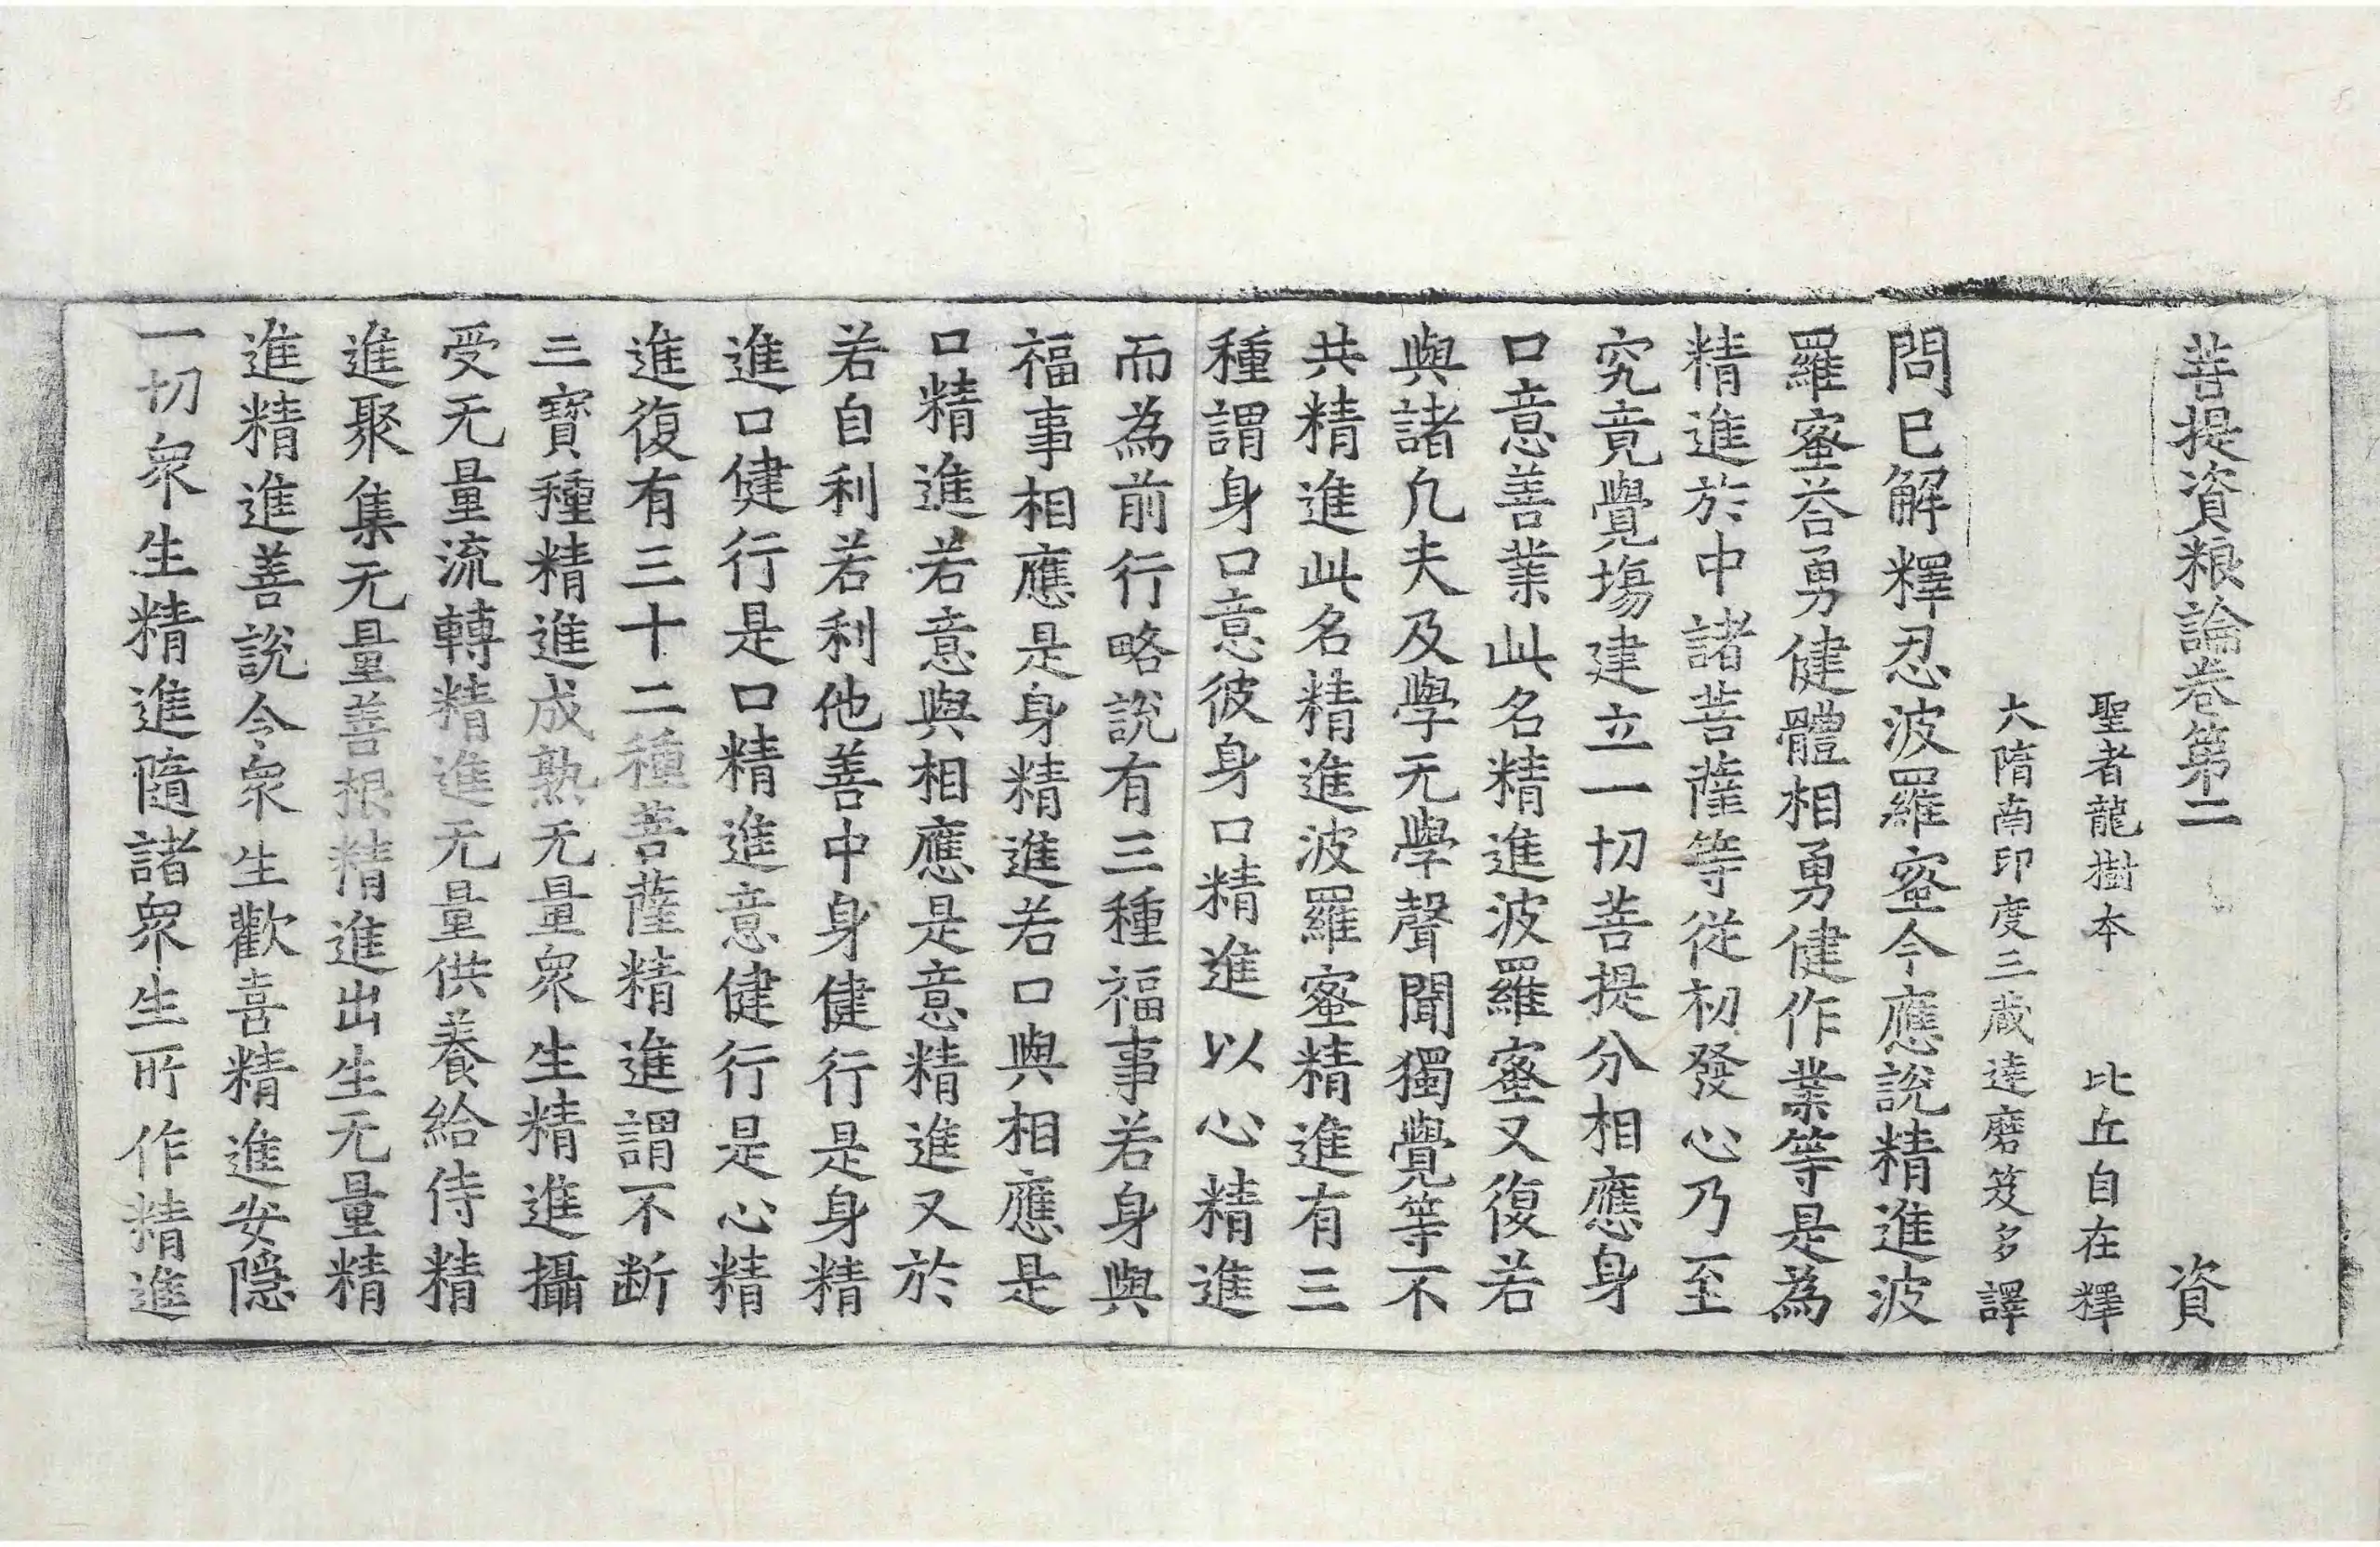 菩提資粮論卷第二 資
聖者龍樹本 比丘自在釋
大隋南印度三藏達磨笈多譯
問巳解釋忍波羅蜜今應說精進波
羅蜜荅勇健體相勇健作業等是為
精進於中諸菩薩等從初發心乃至
究竟覺場建立一切菩提分相應身
口意善業此名精進波羅蜜又復若
與諸凡夫及學无學聲聞獨覺等不
共精進此名精進波羅蜜精進有三
種謂身口意彼身口精進以心精進
而為前行略說有三種福事若身與
福事相應是身精進若口與相應是
口精進若意與相應是意精進又於
若自利若利他善中身健行是身精
進口健行是口精進意健行是心精
進復有三十二種菩薩精進謂不断
三寶種精進成熟无量衆生精進攝
受无量流轉精進无量供養給侍精
進聚集无量善根精進出生无量精
進精進善說令衆生歡喜精進安隱
一切衆生精進隨諸衆生所作精進